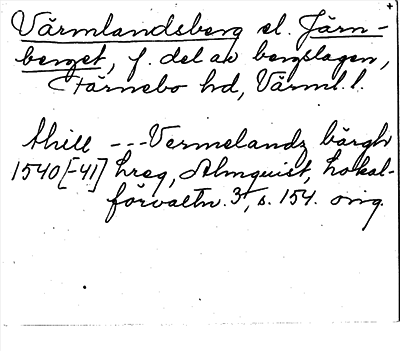 Värmlandsberg el. Järn-
berget, f. del av bergslagen,
Färnebo hd, Värml. l.
till ---Vermelandz bärgh
1540[-41] hreg, Almquist, Lokal-
förvaltn. 3, s. 154. orig.